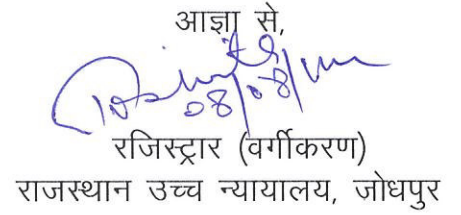 आज्ञा से,
08/08/
रजिस्ट्रार (वर्गीकरण)
राजस्थान उच्च न्यायालय, जोधपुर